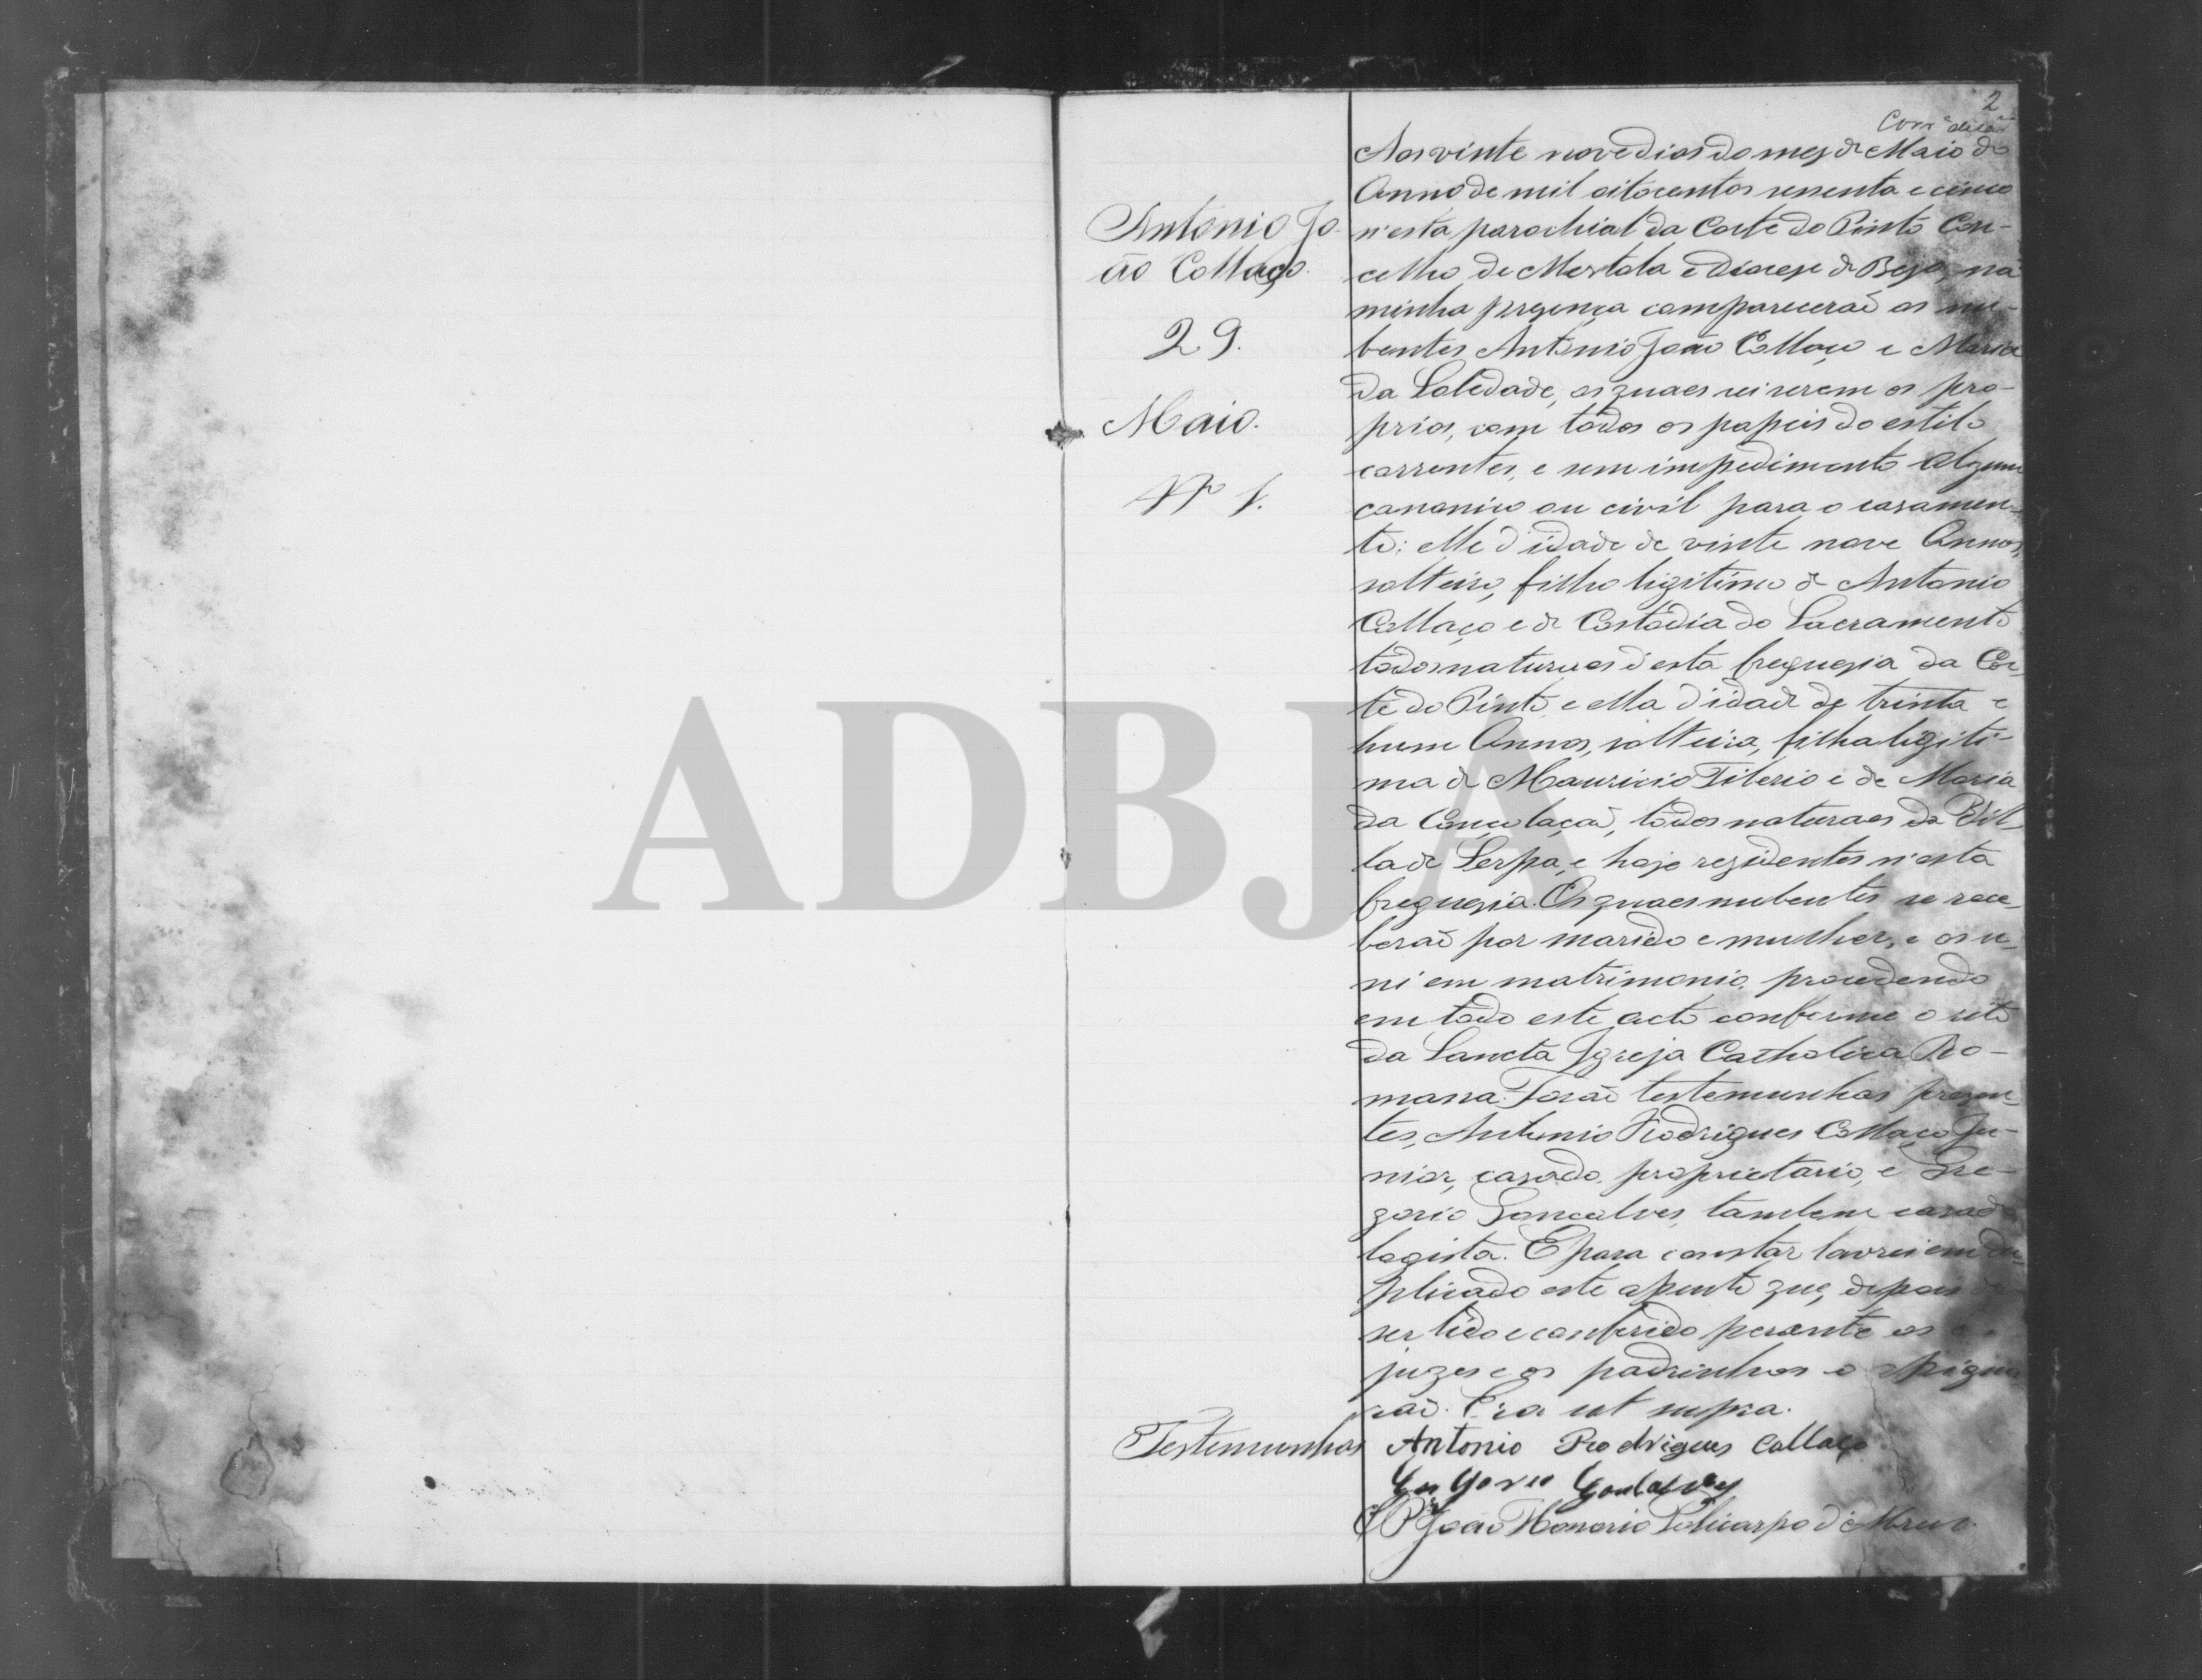 2
Aos vinte nove dias do mez de Maio do
Anno de mil oitocentos sessenta e cinco
n'esta parochial da Corte do Pinto Con-
celho de Mertola e Diocese de Beja, na
minha prezença compareceraõ os nu-
bentes Antonio Joaõ Collaço e Maria
da Soledade, os quaes sei serem os pro-
prios, com todos os papeis do estilo
correntes, e sem impedimento algum
canonico ou civil para o casamen-
to; elle d'idade de vinte nove Annos,
solteiro, filho ligitimo de Antonio
Collaço e de Costodia do Sacramento
todos naturaes d'esta freguezia da Cor-
te do Pinto e ella d'idade de trinta e
hum Annos, solteira, filha ligiti-
ma de Mauricio Tiberio e de Maria
da Conçolaçaõ, todos naturaes da Vil-
la de Serpa, e hoje rezidentes n'esta
freguezia. Os quaes nubentes se rece-
beraõ por marido e mulher, e os u-
ni em matrimonio, procedendo
em todo este acto conforme o rito
da Sancta Igreja Catholica Ro-
mana. Foraõ testemunhas prezen-
tes, Antonio Rodrigues Collaço Ju-
nior, cazado, proprietario, e Gre-
gorio Goncalves, tambem casado
logista. E para constar lavrei em du-
plicado este assento que, depois de
ser lido e conferido perante os
juges e os padrinhos o assigna-
raõ. Era ut supra.
Antonio Rodrigues Collaço
Gregorio Goncalves
O P.r Joaõ Honorio Policarpo d'
Antonio Jo-
ão Collaço.
29.
Maio.
Nº 1.
Testemunhas
ADBJA